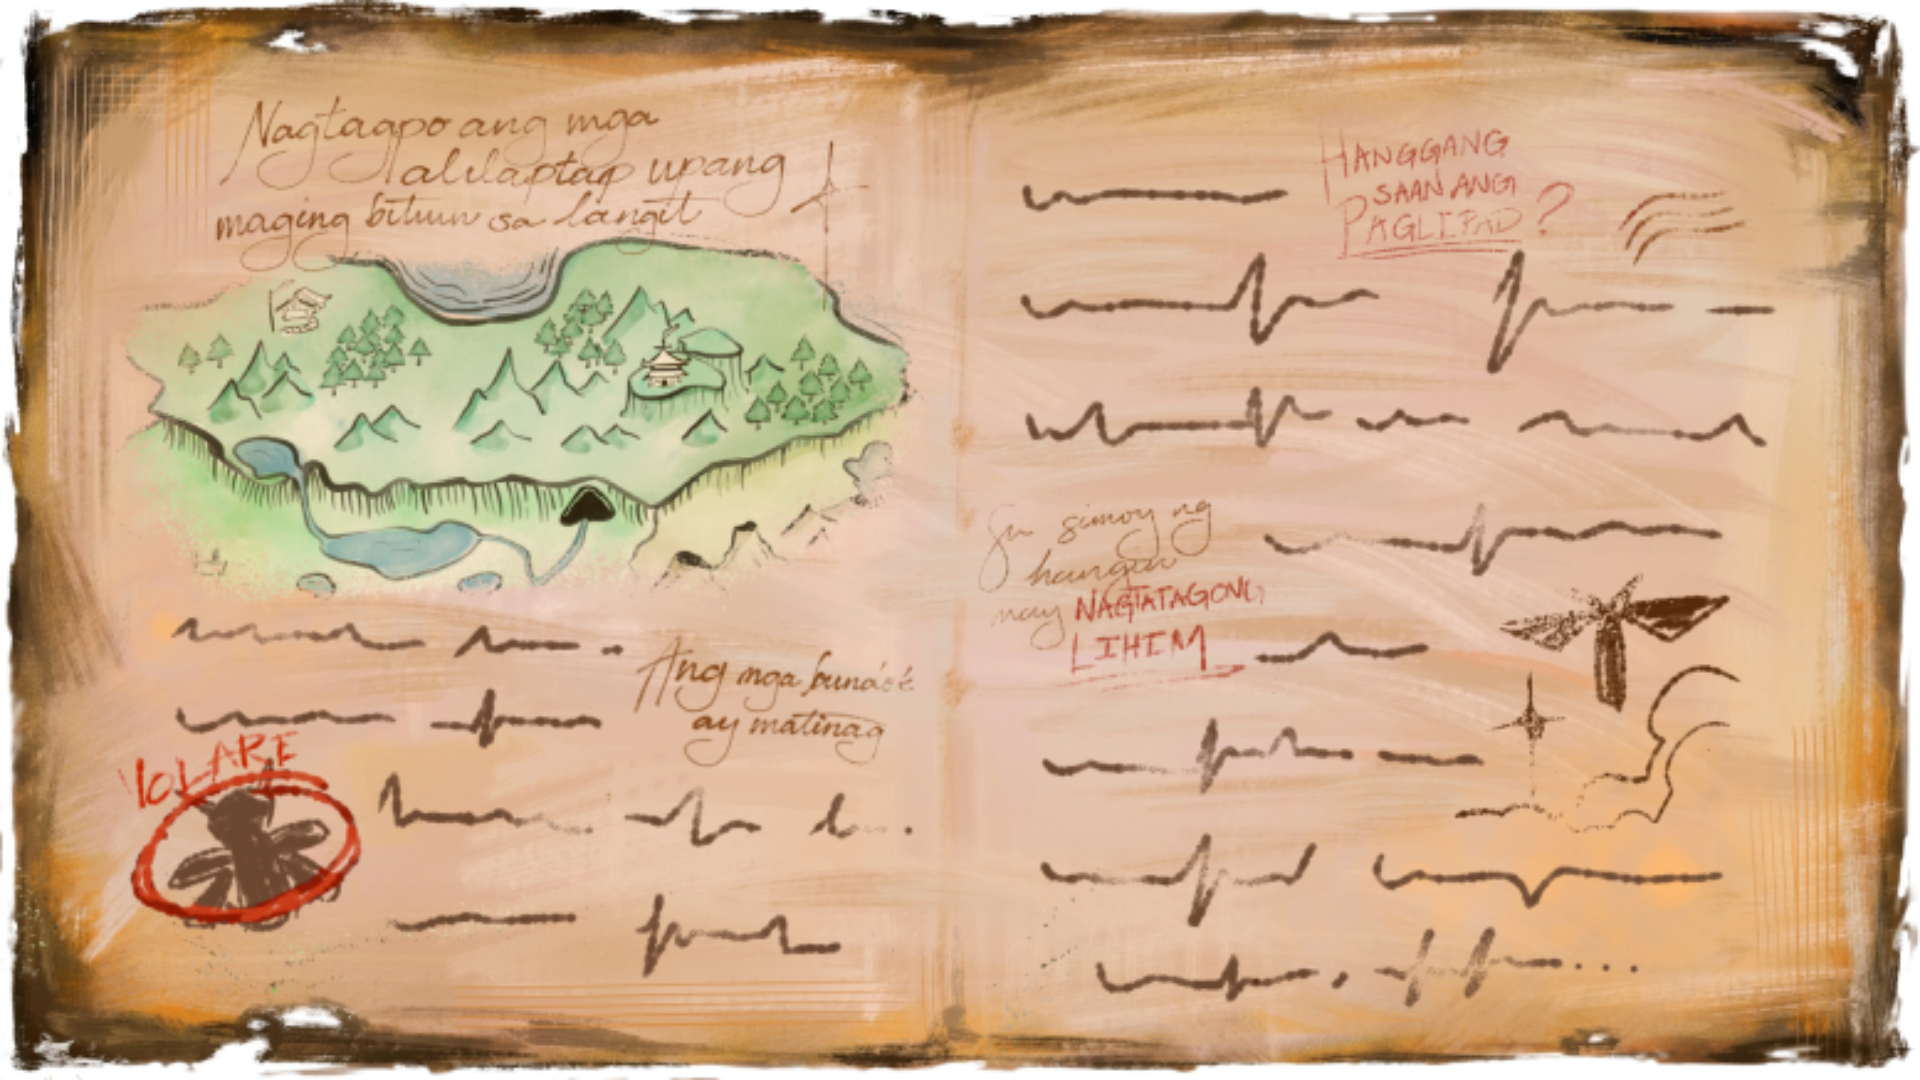 Nagtagpo ang mga
alilaptap upang
maging bituin sa langit
Ang mga bundok
ay matinag
VOLARE
HANGGANG
SAAN ANG
PAGLIPAD?
Sa simoy ng
hangin
may NAGTATAGONG
LIHIM